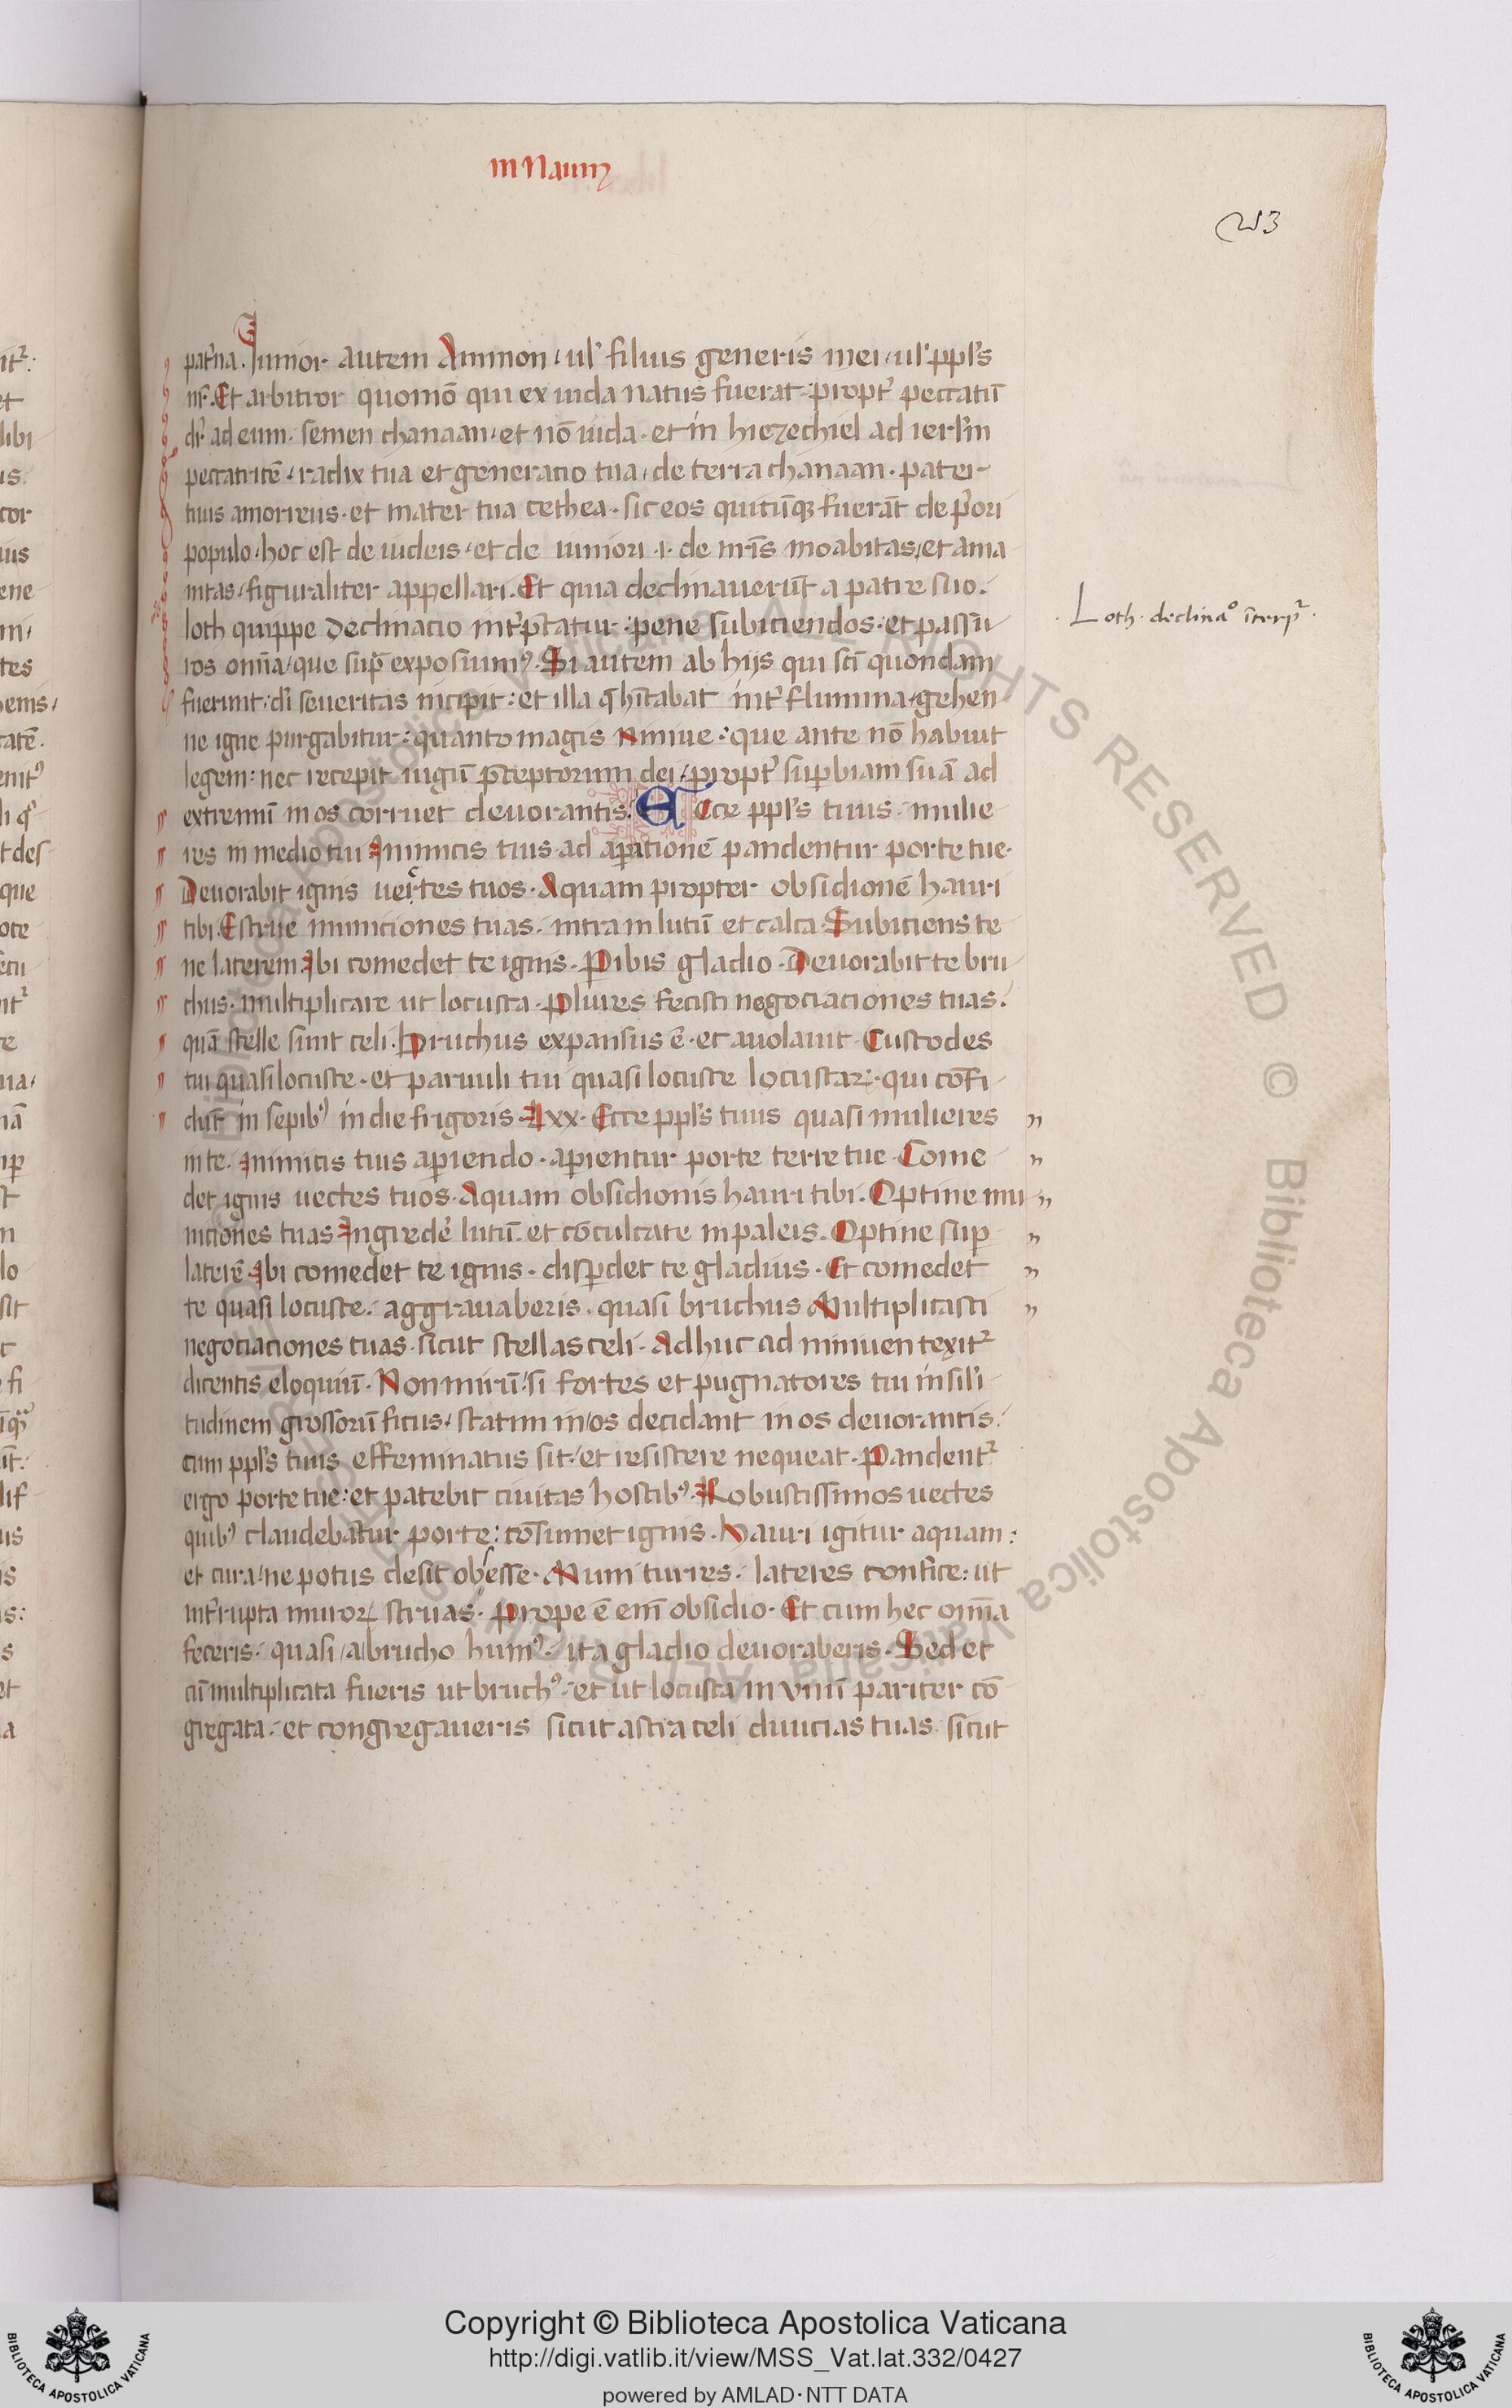 in Naum
213
pat̾na. Iunior autem Ammon, ul̾ filius generis mei, ul̾ ppl̾s
nr̄. Et arbitror quomō qui ex iuda natus fuerat, propt̾ peccatū
dr̄ ad eum. semen chanaan, et nō iuda. et in hiezechiel ad ierl̾m
peccatricē. radix tua et generatio tua, de terra chanaan. pater
tuus amorreus. et mater tua cethea. sic eos quicūqꝫ fuerāt de p̾ori
populo, hoc est de iudeis, et de iuniori .i. de nr̄is moabitas, et ama
nitas, figuraliter appellari. Et quia declinauerūt a patre suo.
loth quippe declinacio int̾p̄tatur: pene subiciendos. et passu
ros om̄ia, que sup̄ exposuim⁹. Si autem ab hijs qui sc̄i quondam
fuerunt: di̾ seueritas incipit: et illa q̄ hītabat int̾ flumina, gehen
ne igne purgabitur: quanto magis Niniue: que ante nō habuit
legem: nec recepit iugū p̄ceptorum dei, propt̾ sup̱biam suā ad
extremū in os corruet deuorantis. Ecce ppl̾s tuus. mulie
res in medio tui Inimicis tuis ad ap̱itionē pandentur porte tue.
Deuorabit ignis uectes tuos. Aquam propter obsidionē hauri
tibi. Estrue municiones tuas. intra in lutū et calca. Subiciens te
ne laterem. Ibi comedet te ignis. Pibis gladio. Deuorabit te bru
chus. multiplicare ut locusta. Plures fecisti negociaciones tuas.
quā stelle sunt celi. bruchus expansus ē. et auolauit. Custodes
tui quasi locuste. et paruuli tui quasi locuste locustaꝝ. qui cōsi
dūt in sepib⁹ in die frigoris. Lxx. Ecce ppl̾s tuus quasi mulieres
in te. Inimicis tuis ap̱iendo. ap̱ientur porte terre tue. Come
det ignis uectes tuos. Aquam obsidionis hauri tibi. Optine mu
niciones tuas. Ingredē lutū. et cōculcare in paleis. Optine sup̱
laterē. Ibi comedet te ignis. disp̱det te gladius. Et comedet
te quasi locuste. aggrauaberis. quasi bruchus Multiplicasti
negociaciones tuas. sicut stellas celi. Adhuc ad niniuen texit̾
dicentis eloquiū. Non mirū, si fortes et pugnatores tui in sil̾i
tudinem grossorū ficus, statim in os decidant in os deuorantis.
cum ppl̾s tuus effeminatus sit, et resistere nequeat. Pandent̾
ergo porte tue: et patebit ciuitas hostib⁹. Robustissimos uectes
quib⁹ claudebātur porte: cōsumet ignis. Hauri igitur aquam:
et cura, ne potus desit obsesse. Muni turres. lateres confice: ut
int̾rupta muroꝝ struas. Prope ē eni̅ obsidio. Et cum hec om̄ia
feceris. quasi a brucho hum⁹. ita gladio deuoraberis. Sed et
cū multiplicata fueris ut bruch⁹. et ut locusta in vnū pariter cō
gregata. et congregaueris sicut astra celi diuicias tuas. sicut
. Loth. declinaᵒ īterp̾.
Copyright © Biblioteca Apostolica Vaticana
http://digi.vatlib.it/view/MSS_Vat.lat.332/0427
powered by AMLAD·NTT DATA